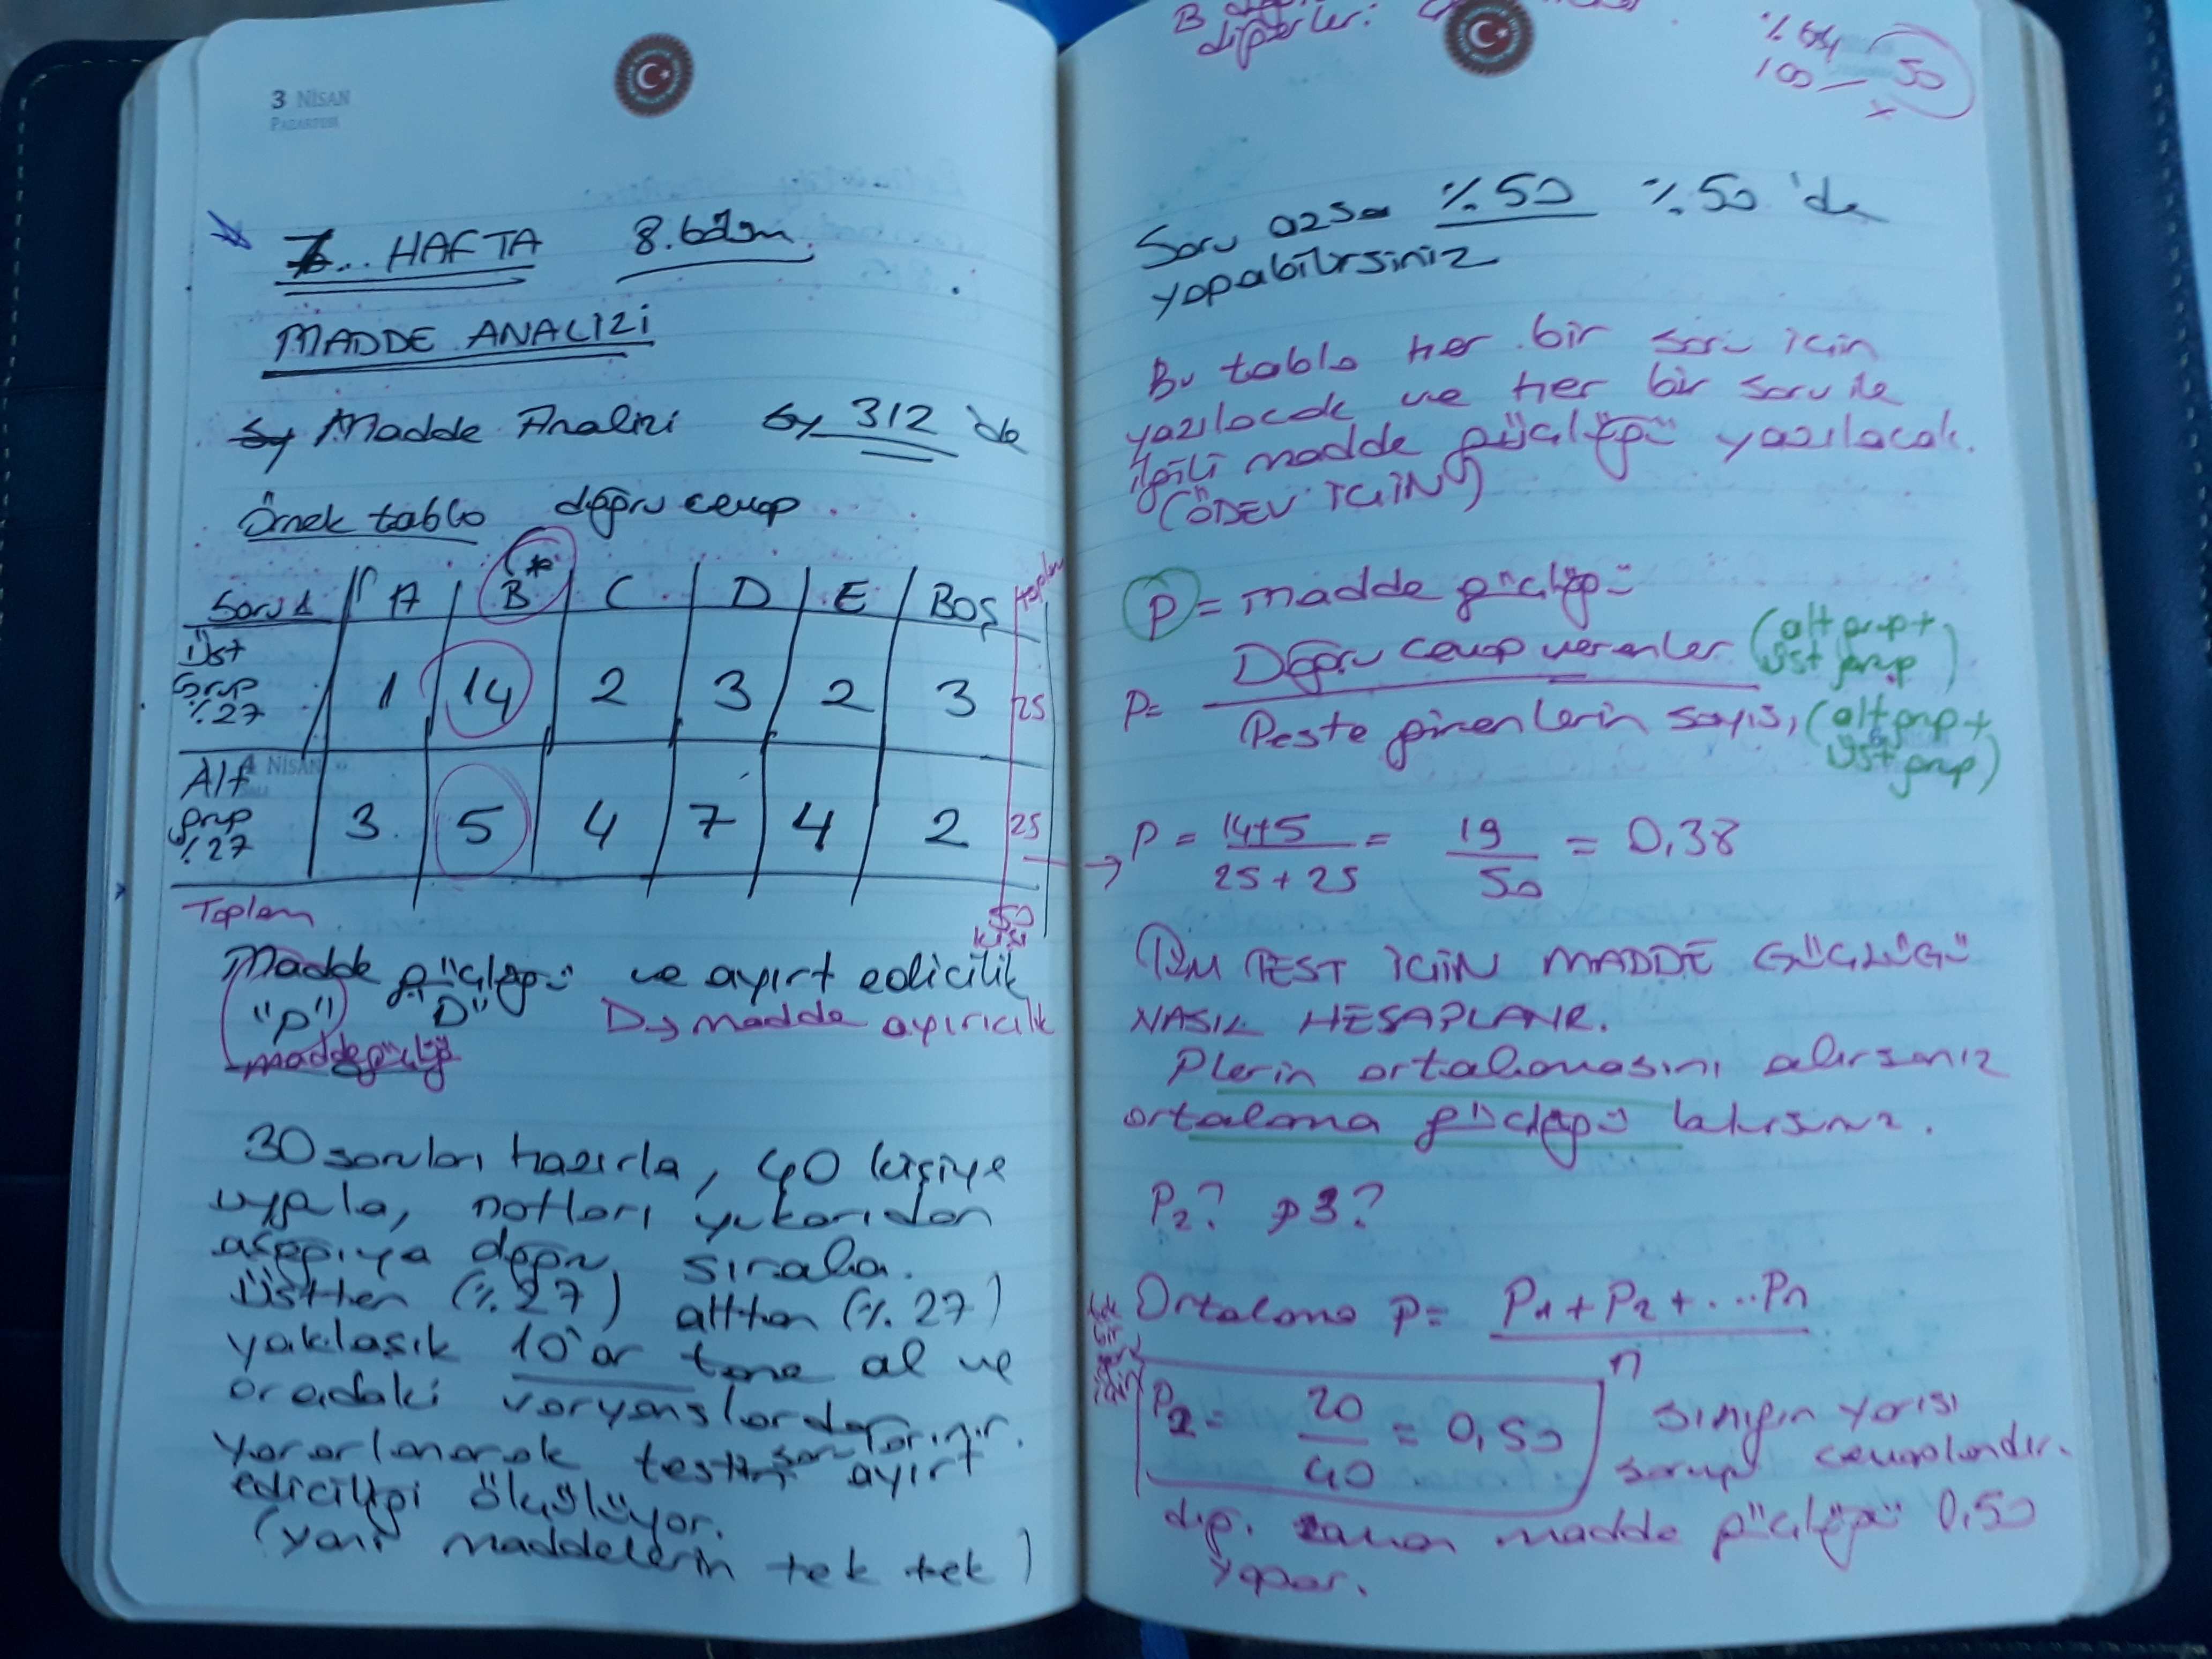 3 NİSAN
PAZARTESİ
7... HAFTA 8. bölüm
MADDE ANALİZİ
Sy Madde Analizi Sy 312 'de
Örnek tablo doğru cevap
Soru 1 A B* C D E BOŞ toplam
Üst Grup %27 1 14 2 3 2 3 25
4 NİSAN
Alt grup %27 3 5 4 7 4 2 25
Toplam 50 kişi
Madde güçlüğü ve ayırt edicilik
"p" D" D→ madde ayırıcılık
madde güçlüğü
30 soruları hazırla, 40 kişiye
uygula, notları yukarıdan
aşağıya doğru sırala.
Üstten (%27) alttan (%27)
yaklaşık 10'ar tane al ve
oradaki varyanslardan
yararlanarak testin sorularının ayırt
ediciliği ölçülüyor.
(yani maddelerin tek tek)
B
diğerleri:
% 64
100 — 50
x
Soru azsa %50 %50 'de
yapabilirsiniz
Bu tablo her bir soru için
yazılacak ve her bir soru ile
ilgili madde güçlüğü yazılacak.
(ÖDEV İÇİN)
p = madde güçlüğü
P = Doğru cevap verenler (alt grup + üst grup)
Teste girenlerin sayısı (alt grup + üst grup)
→ P = 14+5 / 25+25 = 19 / 50 = 0,38
TÜM TEST İÇİN MADDE GÜÇLÜĞÜ
NASIL HESAPLANIR.
P lerin ortalamasını alırsanız
ortalama güçlüğü bulursunuz.
P2? p3?
Ortalama p = P1 + P2 + ...Pn / n
P2 = 20 / 40 = 0,50 sınıfın yarısı
soruyu cevaplandır.
dığ. zaman madde güçlüğü 0,50
yapar.